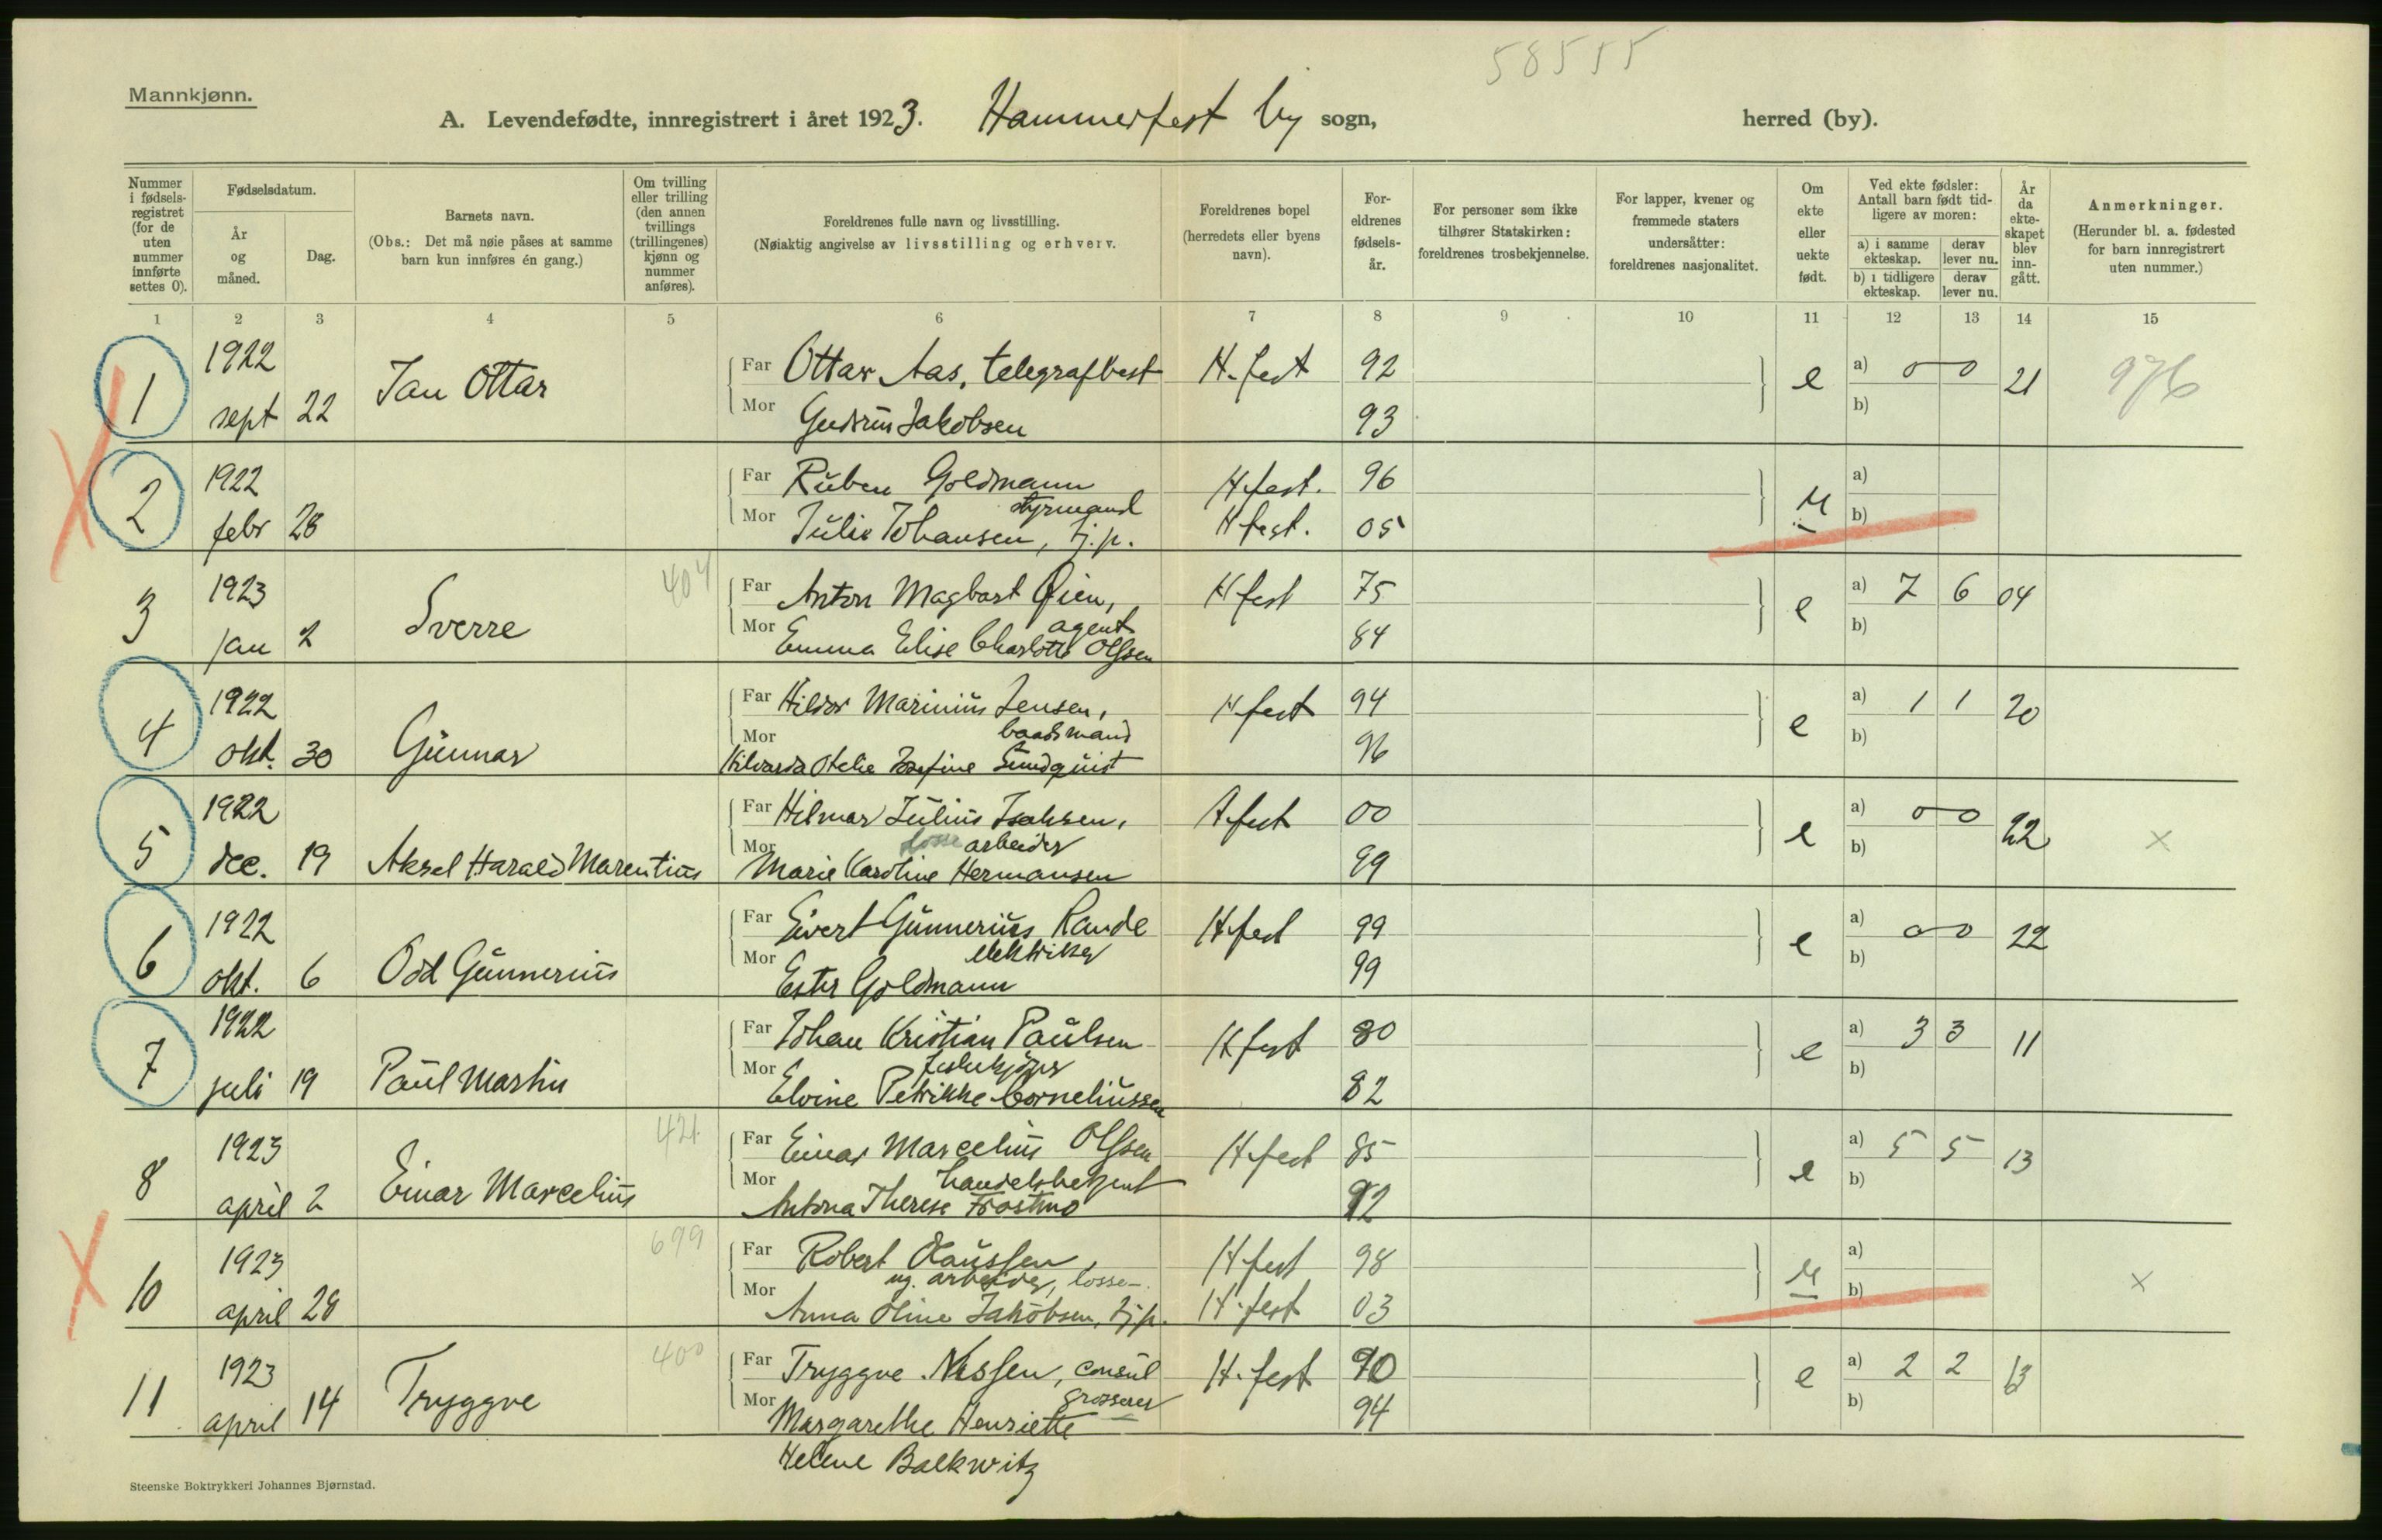 58555
Mannkjønn.
A. Levendefødte, innregistrert i året 1923. Hammerfest by sogn, herred (by).
Nummer i fødselsregistret (for de uten nummer innførte settes 0).
Fødselsdatum.
År og måned.
Dag.
Barnets navn.
(Obs.: Det må nøie påses at samme barn kun innføres én gang.)
Om tvilling eller trilling (den annen tvillings (trillingenes) kjønn og nummer anføres).
Foreldrenes fulle navn og livsstilling.
(Nøiaktig angivelse av livsstilling og erhverv.
Foreldrenes bopel (herredets eller byens navn).
Foreldrenes fødselsår.
For personer som ikke tilhører Statskirken: foreldrenes trosbekjennelse.
For lapper, kvener og fremmede staters undersåtter: foreldrenes nasjonalitet.
Om ekte eller uekte født.
Ved ekte fødsler: Antall barn født tidligere av moren:
a) i samme ekteskap.
derav lever nu.
b) i tidligere ekteskap.
derav lever nu.
År da ekteskapet blev inngått.
Anmerkninger.
(Herunder bl. a. fødested for barn innregistrert uten nummer.)
1 2 3 4 5 6 7 8 9 10 11 12 13 14 15
1922
1 sept 22 Jan Ottar
Far Ottar Aas, telegrafbest H.fest 92 e a) 0 0 21 976
Mor Gudrun Jakobsen 93 b)
1922
2 febr 28
Far Ruben Goldmann H.fest. 96 a)
styrmand
Mor Julie Johansen, tj.p. H.fest. 05 u b)
1923 404
3 jan 2 Sverre
Far Anton Magbart Øien, H.fest 75 e a) 7 6 04
agent
Mor Emma Elise Charlotte Olssen 84 b)
1922
4 okt. 30 Gunnar
Far Hildor Marinius Jensen, H.fest 94 e a) 1 1 20
baadsmand
Mor Otelie Josefine Sundquist 96 b)
1922
5 dec. 19 Aksel Harald Marentius
Far Hilmar Julius Isaksen, H.fest 00 e a) 0 0 22 x
losse arbeider
Mor Marie Karoline Hermansen 99 b)
1922
6 okt. 6 Odd Gunnerius
Far Sivert Gunnerius Rande H.fest 99 e a) 0 0 22
elektriker
Mor Ester Goldmann 99 b)
1922
7 juli 19 Paul Martin
Far Johan Kristian Paulsen H.fest 80 e a) 3 3 11
fiskekjøper
Mor Elvine Petrikke Corneliussen 82 b)
1923 421
8 april 2 Einar Marcelius
Far Einar Marcelius Olssen H.fest 85 e a) 5 5 13
handelsbetjent
Mor Antona Therese Frostmo 92 b)
1923 699
10 april 28
Far Robert Klaussen, H.fest 98 a)
ug. arbeider, losse-
Mor Anna Oline Jakobsen, tj.p. H.fest 03 u b) x
1923 400
11 april 14 Tryggve
Far Tryggve Nissen, consul H.fest 90 e a) 2 2 13
grosserer
Mor Margarethe Henriette 94 b)
Helene Balkwitz
Steenske Boktrykkeri Johannes Bjørnstad.